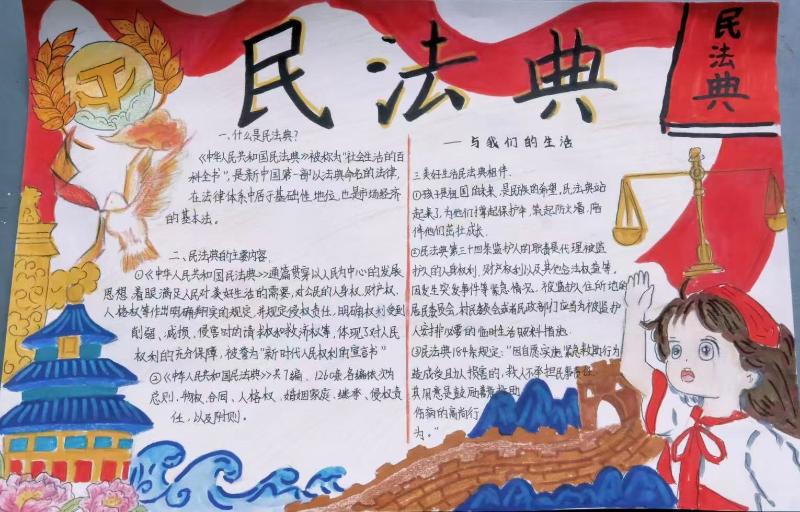 民法典
民法典
一、什么是民法典?
《中华人民共和国民法典》被称为"社会生活的百
科全书",是新中国第一部以法典命名的法律,
在法律体系中居于基础性地位,也是市场经济
的基本法。
二、民法典的主要内容.
①《中华人民共和国民法典》通篇贯穿以人民为中心的发展
思想,着眼满足人民对美好生活的需要,对公民的人身权、财产权、
人格权等作出明确翔实的规定,并规定侵权责任,明确权利受到
削弱、减损、侵害时的请求权和救济权等,体现了对人民
权利的充分保障,被誉为"新时代人民权利的宣言书"
②《中华人民共和国民法典》共7编、1260条,各编依次为
总则、物权、合同、人格权、婚姻家庭、继承、侵权责
任,以及附则。
—与我们的生活
三.美好生活民法典相伴.
①孩子是祖国的未来,是民族的希望,民法典站
起来了,为他们撑起保护伞,筑起防火墙,陪
伴他们茁壮成长.
②民法典第三十四条监护人的职责是代理被监
护人的人身权利、财产权利以及其他合法权益等,
因发生突发事件等紧急情况,被监护人住所地的
居民委员会,村民委员会或者民政部门应当为被监护
人安排必要的临时生活照料措施.
③民法典184条规定:"因自愿实施紧急救助行为
造成受助人损害的,救助人不承担民事责任.
其用意是鼓励救死扶
伤病的高尚行
为。"